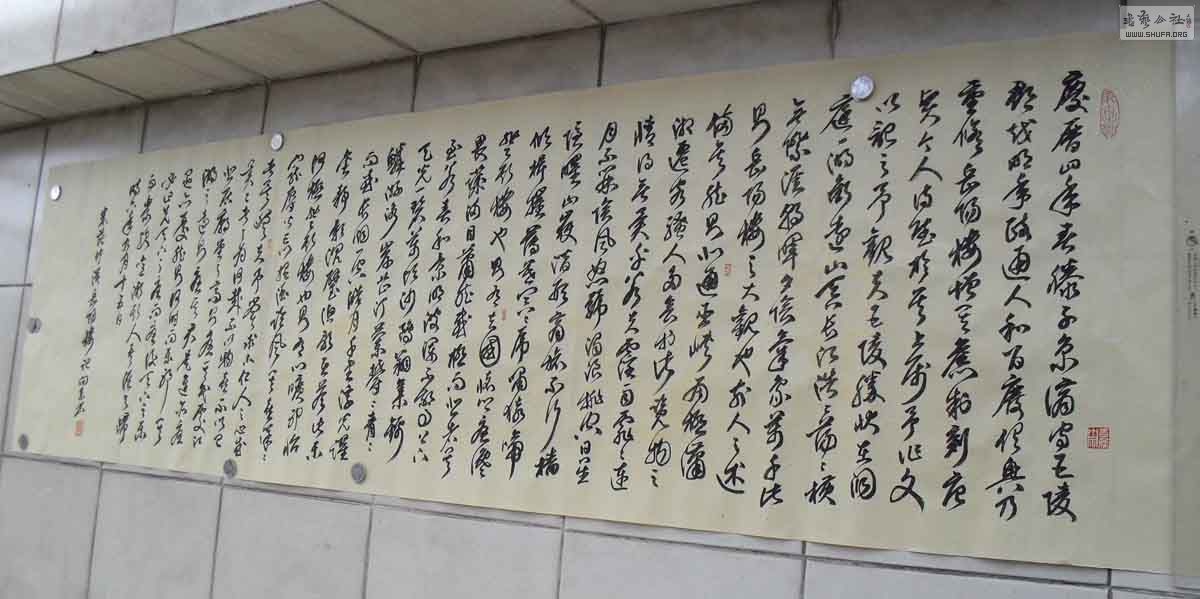 慶曆四年春滕子京謫守巴陵
郡越明年政通人和百廢俱興乃
重修岳陽樓增其舊制刻唐
賢今人詩賦於其上屬予作文
以記之予觀夫巴陵勝狀在洞
庭一湖銜遠山吞長江浩々蕩々橫
無際涯朝暉夕陰氣象萬千此
則岳陽樓之大觀也前人之述
備矣然則北通巫峽南極瀟
湘遷客騷人多會於此覽物之
情得無異乎若夫霪雨霏々連
月不開陰風怒號濁浪排空日星
隱曜山岳潛形商旅不行檣
傾楫摧薄暮冥々虎嘯猿啼
登斯樓也則有去國懷鄉憂讒
畏譏滿目蕭然感極而悲者矣
至若春和景明波瀾不驚上下
天光一碧萬頃沙鷗翔集錦
鱗游泳岸芷汀蘭郁々青々
而或長煙一空皓月千里浮光躍
金靜影沉璧漁歌互答此樂
何極登斯樓也則有心曠神怡
寵辱皆忘把酒臨風其喜洋々
者矣嗟夫予嘗求古仁人之心或
異二者之為何哉不以物喜不以己
悲居廟堂之高則憂其民處江
湖之遠則憂其君是進亦憂
退亦憂然則何時而樂耶其
必曰先天下之憂而憂後天下之樂
而樂乎噫微斯人吾誰與歸
時六年九月十五日
范仲淹岳陽樓記
书艺公社
WWW.SHUFA.ORG